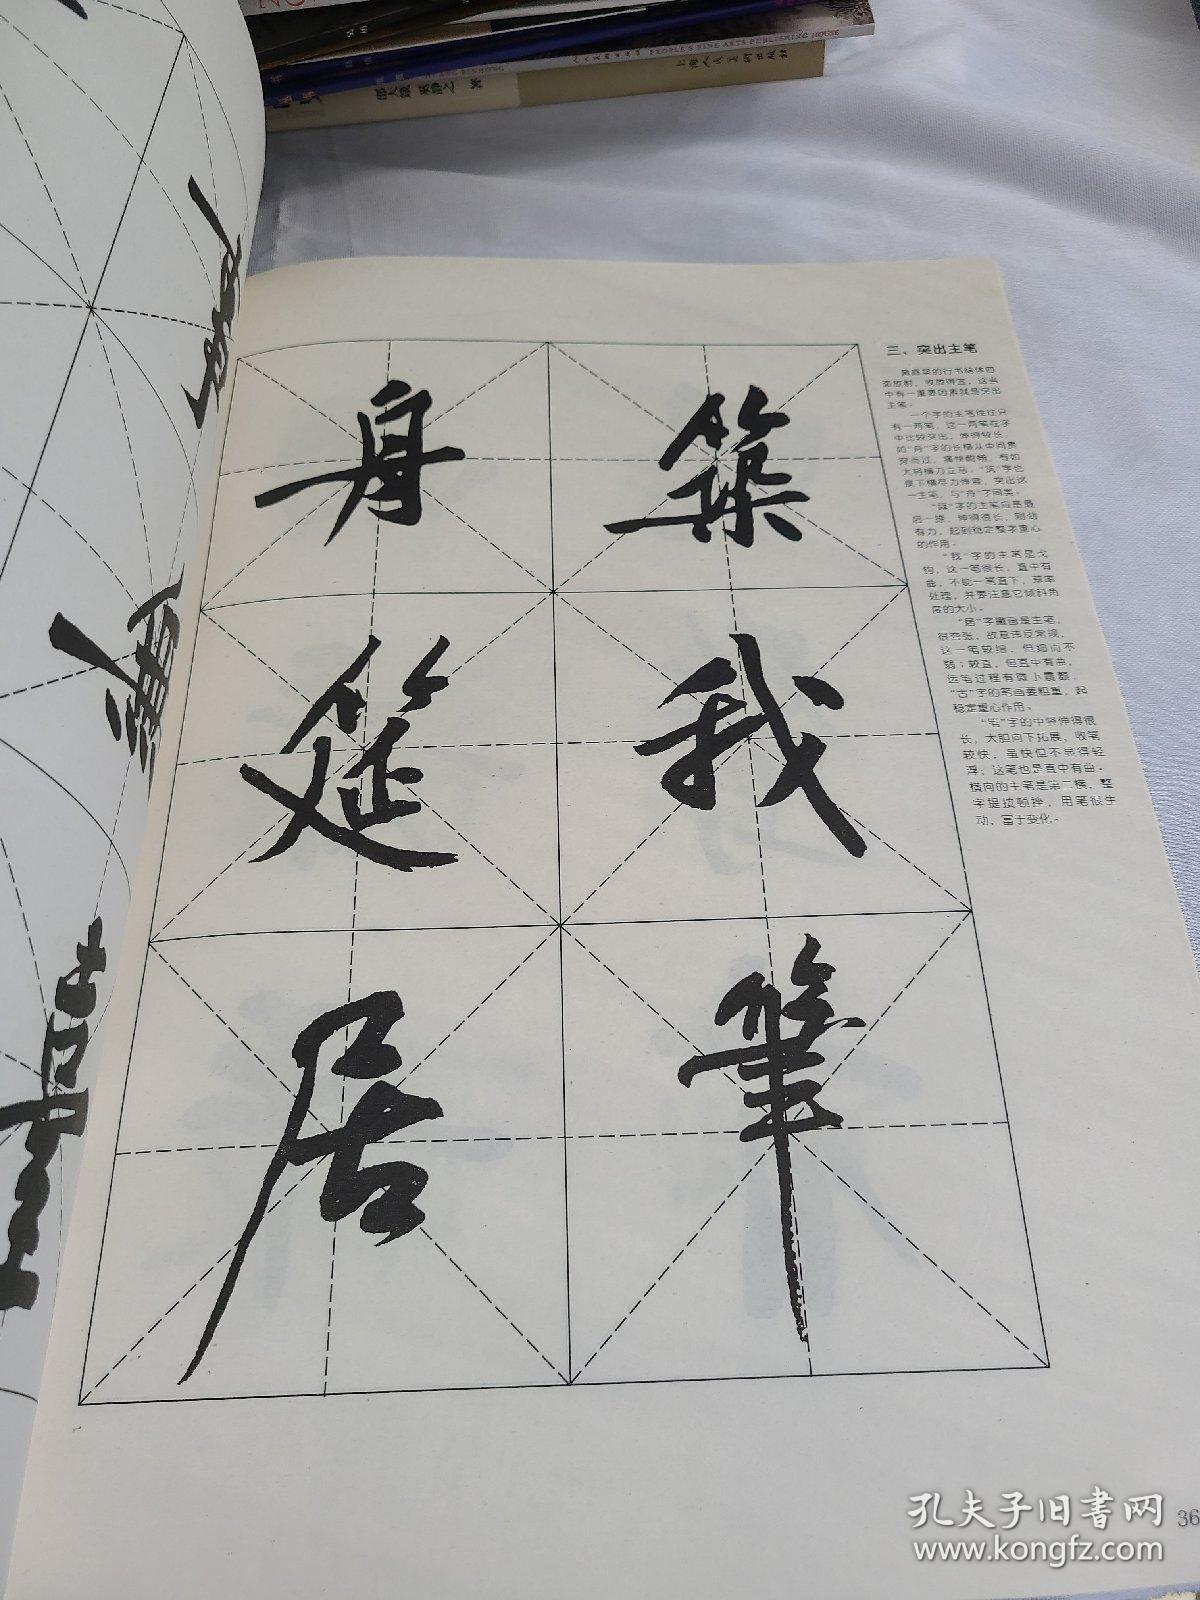 上海人民美术出版社
PEOPLE'S FINE ARTS PUBLISHING HOUSE
著
三、突出主笔
黄庭坚的行书结体四
面放射，收放得宜，这当
中有一重要因素就是突出
主笔。
一个字的主笔往往只
有一两笔，这一两笔在字
中比较突出，伸得较长，
如“舟”字的长横从中间贯
穿而过，痛快酣畅，有如
大将横刀立马。“筑”字也
是下横尽力伸展，突出这
一主笔，与“舟”字同类。
“筵”字的主笔应是最
后一捺，伸得很长，刚劲
有力，起到稳定整字重心
的作用。
“我”字的主笔是戈
钩，这一笔很长，直中有
曲，不能一笔直下，草率
处理，并要注意它倾斜角
度的大小。
“居”字撇画是主笔，
很夸张，故意违反常规，
这一笔较细，但细而不
弱；较直，但直中有曲，
运笔过程有微小震颤，
“古”字的笔画要粗重，起
稳定重心作用。
“笔”字的中竖伸得很
长，大胆向下拓展，收笔
较快，虽快但不显得轻
浮；这笔也是直中有曲。
横向的主笔是第二横，整
字提按顿挫，用笔很生
动，富于变化。
築
我
筆
舟
筵
居
36
孔夫子旧书网
www.kongfz.com